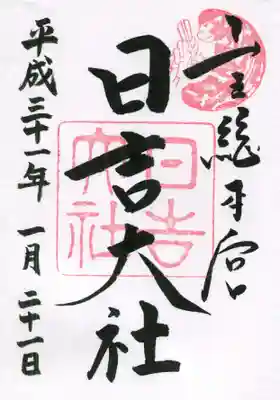 山王総本宮
日吉大社
平成三十一年 一月 二十一日
日吉大社